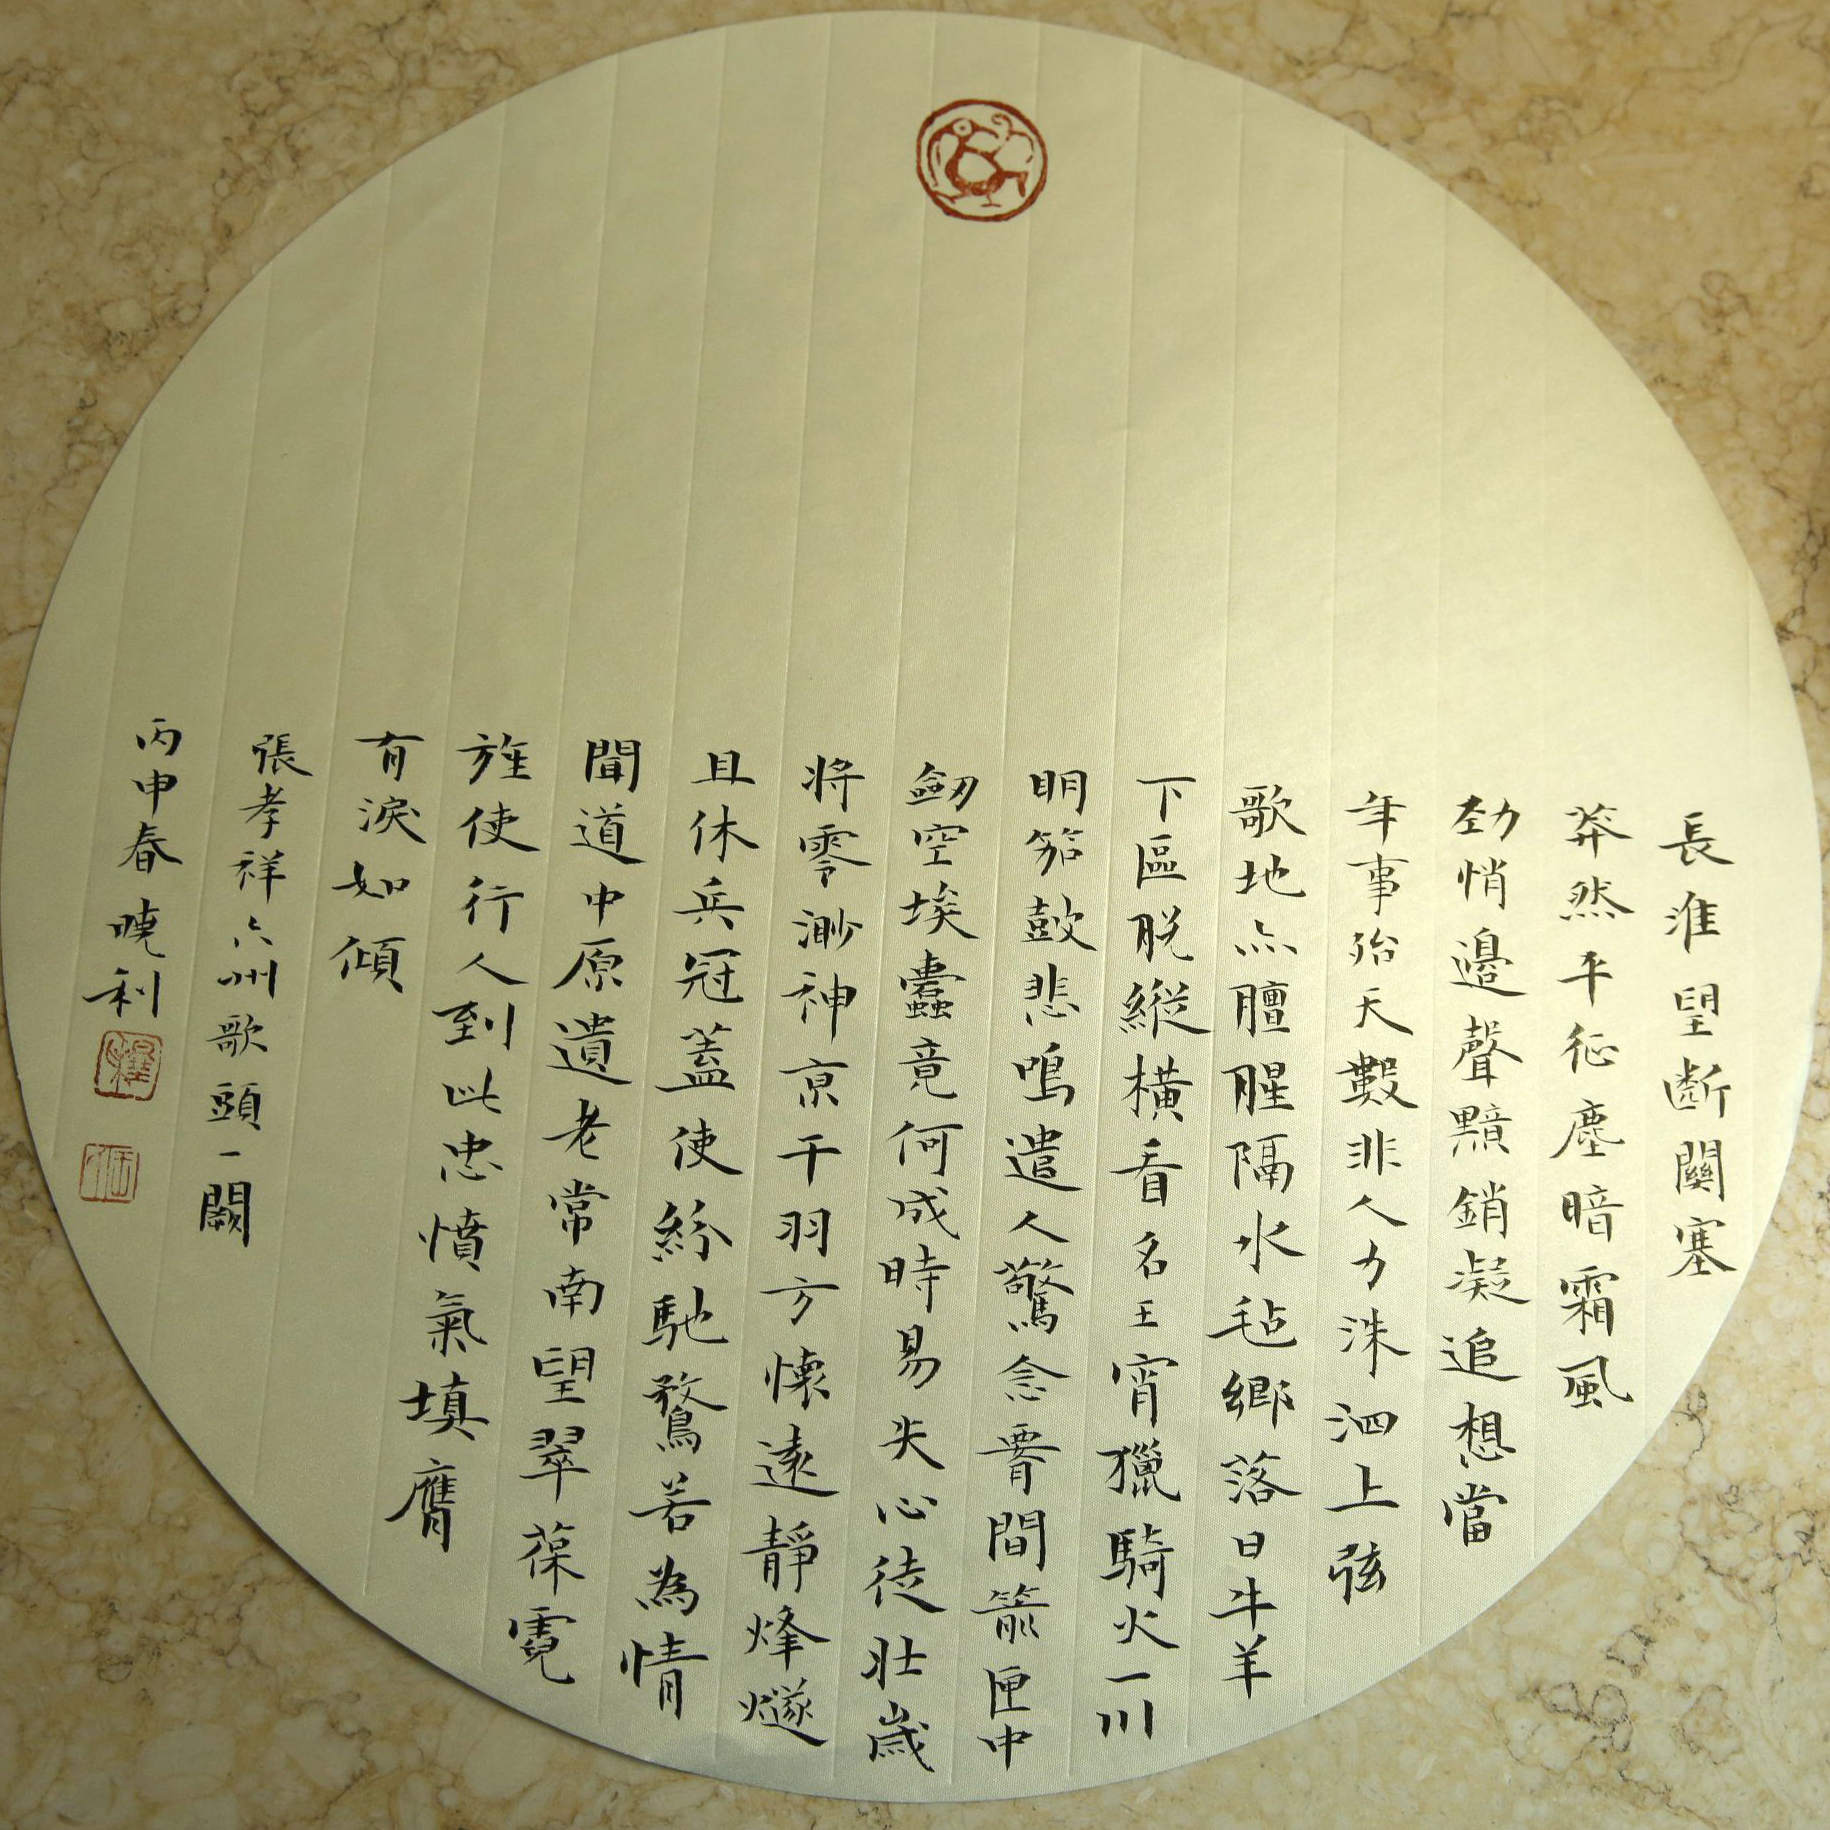 長淮望斷關塞
莽然平征塵暗霜風
勁悄邊聲黯銷凝追想當
年事殆天數非人力洙泗上弦
歌地亦膻腥隔水毡鄉落日牛羊
下區脱縱橫看名王宵獵騎火一川
明笳鼓悲鳴遣人驚念腰間箭匣中
劒空埃蠹竟何成時易失心徒壯歲
將零渺神京干羽方懷遠靜烽燧
且休兵冠蓋使紛馳騖若為情
聞道中原遺老常南望翠葆霓
旌使行人到此忠憤氣填膺
有淚如傾
張孝祥六州歌頭一闋
丙申春曉利